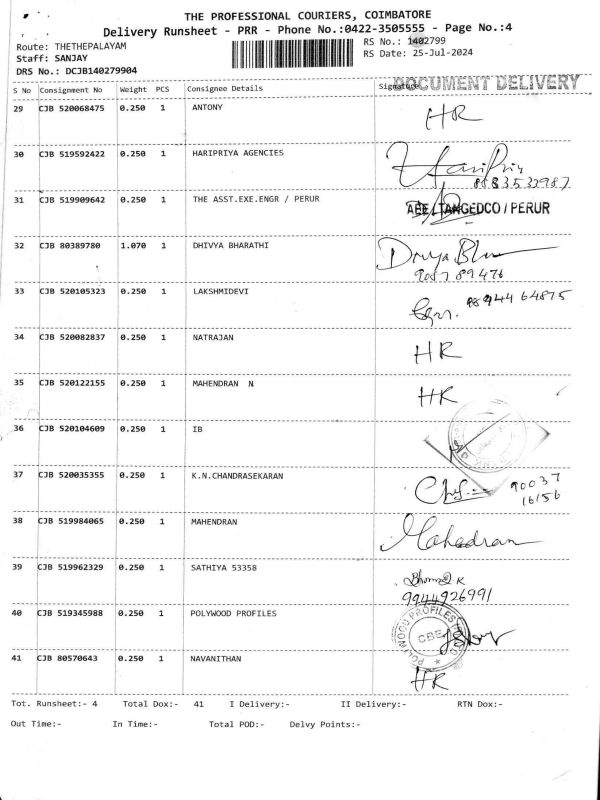 THE PROFESSIONAL COURIERS, COIMBATORE
Delivery Runsheet - PRR - Phone No.:0422-3505555 - Page No.:4
Route: THETHEPALAYAM RS No.: 1402799
Staff: SANJAY RS Date: 25-Jul-2024
DRS No.: DCJB140279904
DOCUMENT DELIVERY
S No Consignment No Weight PCS Consignee Details Signature
29 CJB 520068475 0.250 1 ANTONY HR
30 CJB 519592422 0.250 1 HARIPRIYA AGENCIES HariPriy
8883532987
31 CJB 519909642 0.250 1 THE ASST.EXE.ENGR / PERUR AEE/TANGEDCO/PERUR
32 CJB 80389780 1.070 1 DHIVYA BHARATHI
908789476
33 CJB 520105323 0.250 1 LAKSHMIDEVI 8894464875
34 CJB 520082837 0.250 1 NATRAJAN HR
35 CJB 520122155 0.250 1 MAHENDRAN N HR
36 CJB 520104609 0.250 1 IB
37 CJB 520035355 0.250 1 K.N.CHANDRASEKARAN 90037
16156
38 CJB 519984065 0.250 1 MAHENDRAN Mahedran
39 CJB 519962329 0.250 1 SATHIYA 53358
9944926991
40 CJB 519345988 0.250 1 POLYWOOD PROFILES POLYWOOD PROFILES CBE
41 CJB 80570643 0.250 1 NAVANITHAN HR
Tot. Runsheet:- 4 Total Dox:- 41 I Delivery:- II Delivery:- RTN Dox:-
Out Time:- In Time:- Total POD:- Delvy Points:-